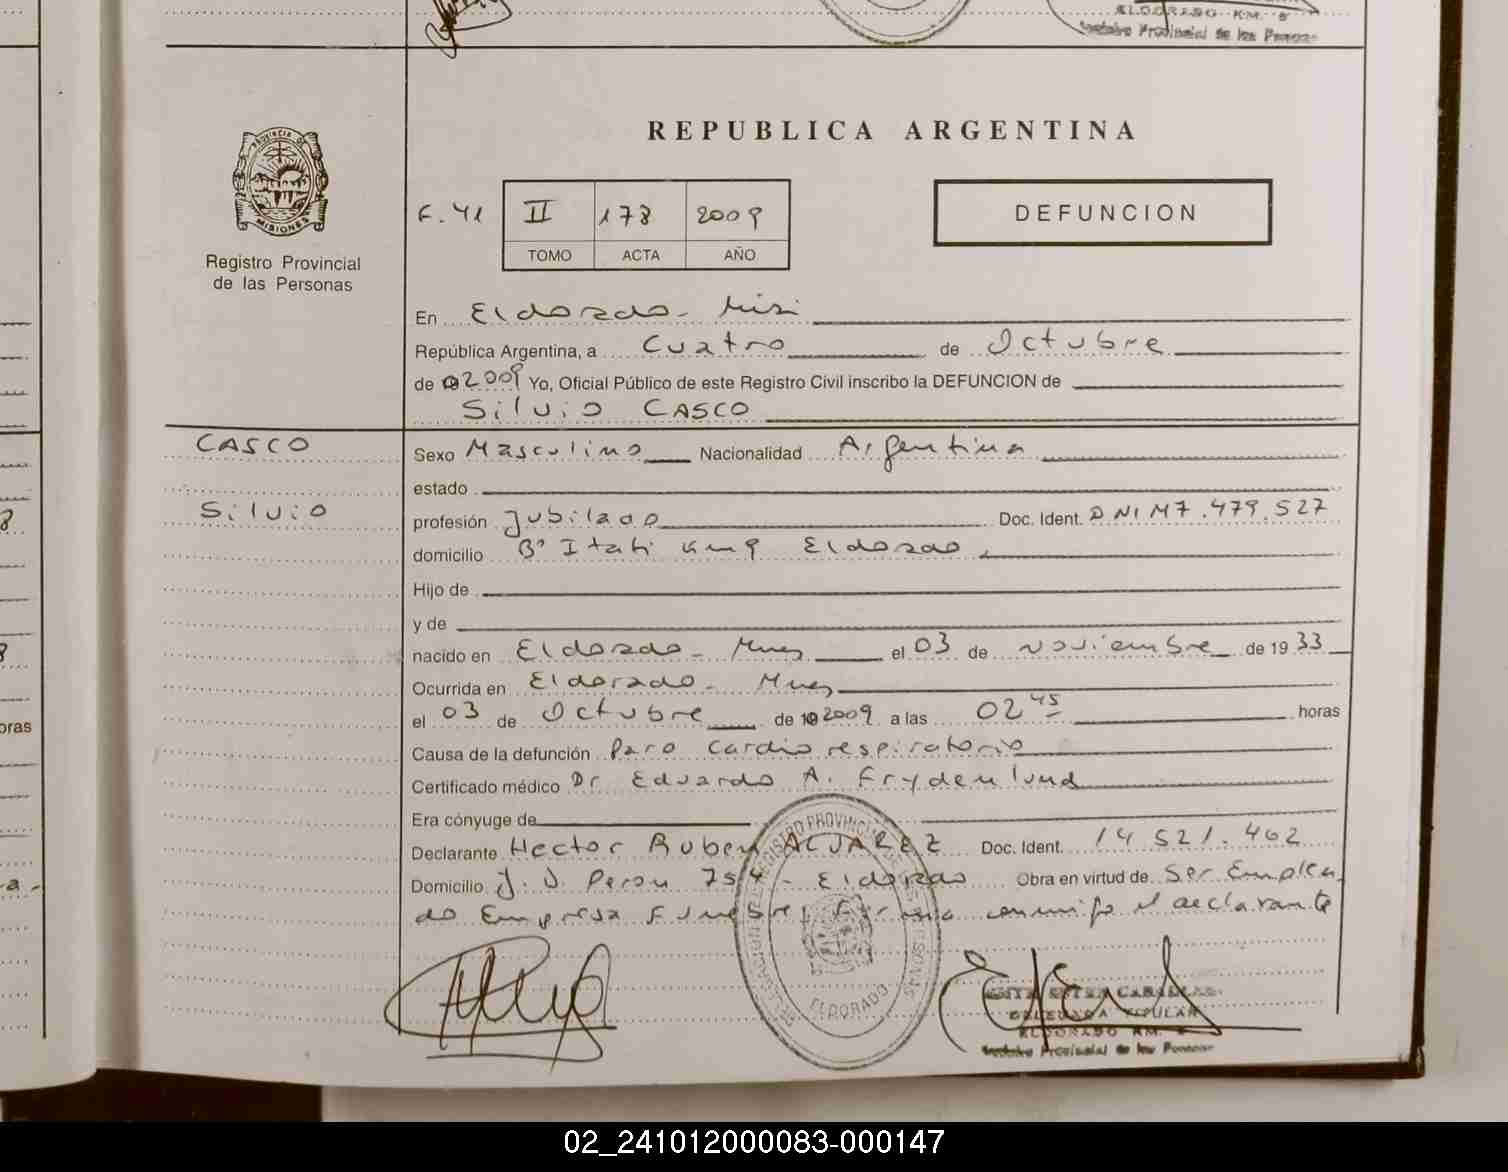 ELDORADO KM. 9
Registro Provincial de las Personas
REPUBLICA ARGENTINA
PROVINCIA DE
MISIONES
F. 41 II 178 2009
TOMO ACTA AÑO
DEFUNCION
Registro Provincial
de las Personas
En Eldorado - Mis
República Argentina, a Cuatro de Octubre
de 2009 Yo, Oficial Público de este Registro Civil inscribo la DEFUNCION de
Silvio CASCO
CASCO
Silvio
Sexo Masculino Nacionalidad Argentina
estado
profesión Jubilado Doc. Ident. DNI M7.479.527
domicilio Bº Itati km 9 Eldorado
Hijo de
y de
nacido en Eldorado - Mnes el 03 de Noviembre de 1933
Ocurrida en Eldorado - Mnes
el 03 de Octubre de 2009 a las 02 45 horas
Causa de la defunción Paro cardio respiratorio
Certificado médico Dr Eduardo A. Frydenlund
Era cónyuge de
Declarante Hector Ruben ALVAREZ Doc. Ident. 14 521.462
Domicilio J. D. Peron 754 - Eldorado Obra en virtud de Ser Emplea
do Empresa Funebre, Firma conmigo el declarante
REGISTRO PROVINCIAL DE LAS PERSONAS
ELDORADO
DELEGADA TITULAR
ELDORADO KM.
Registro Provincial de las Personas
oras
02_241012000083-000147